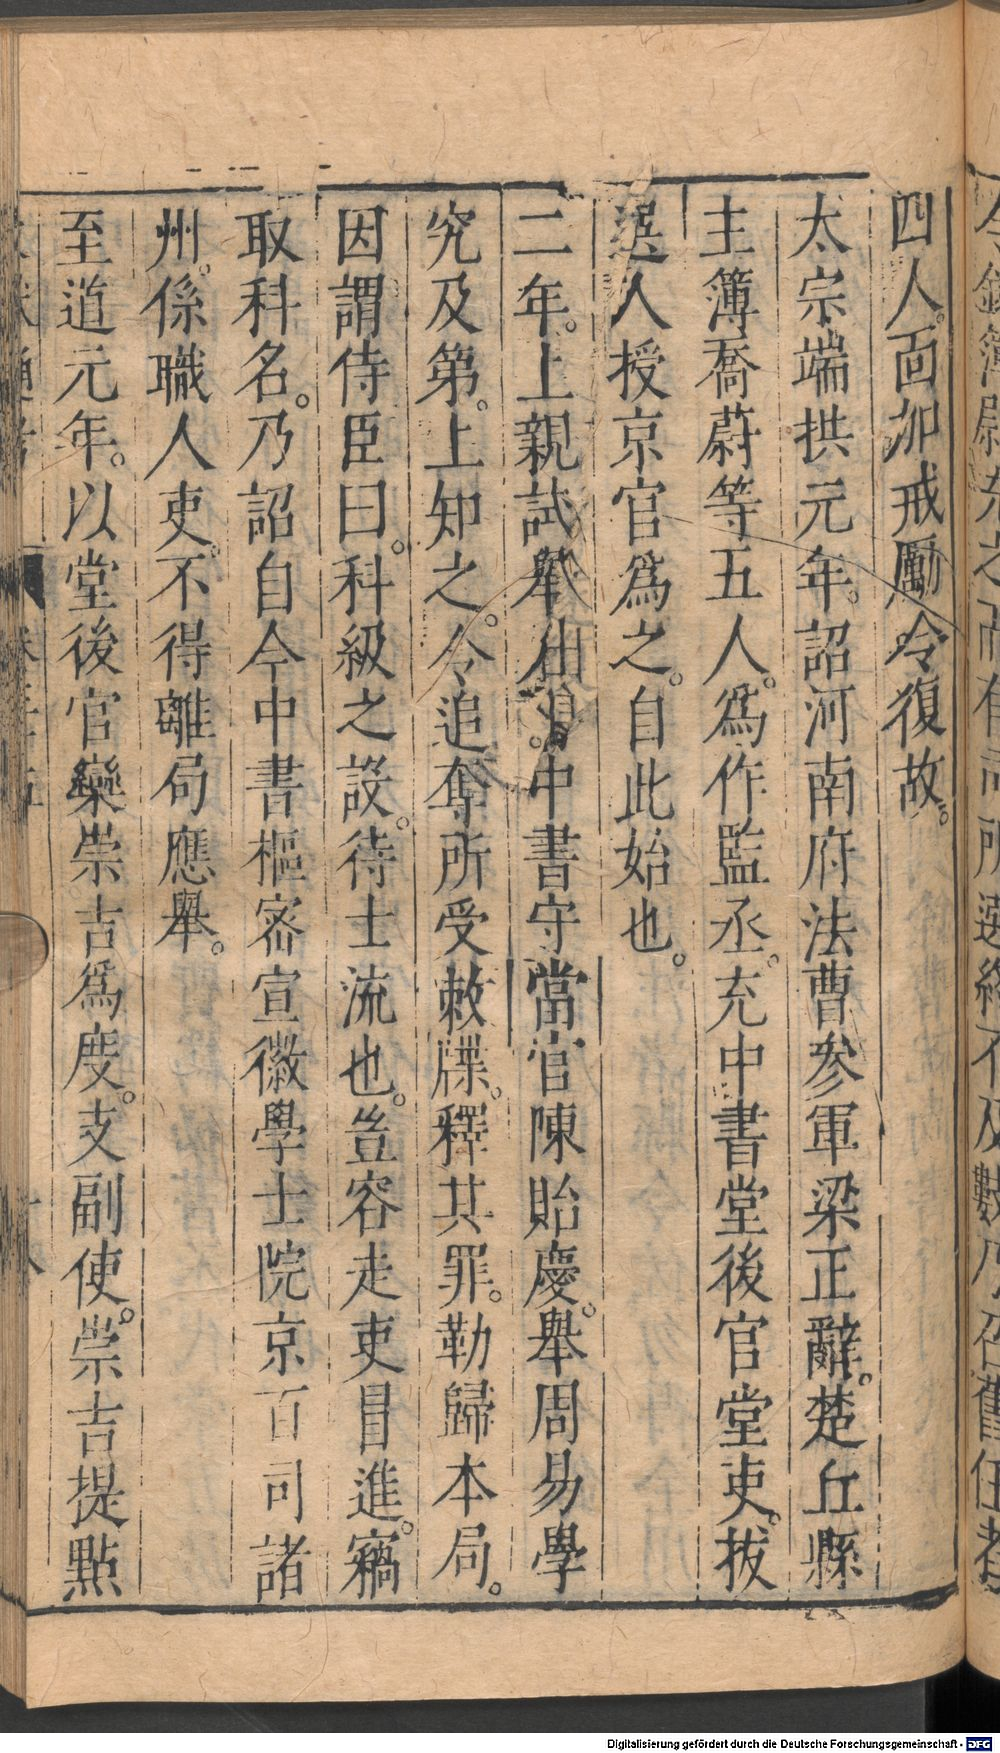 四人。面加戒勵。令復故。
太宗端拱元年。詔河南府法曹參軍梁正辭。楚丘縣
主簿喬蔚等五人。爲作監丞。充中書堂後官堂吏。拔
選人授京官爲之。自此始也。
二年。上親試舉人。中書守當官陳貽慶。舉周易學
究及第。上知之。令追奪所受敕牒。釋其罪。勒歸本局。
因謂侍臣曰。科級之設。待士流也。豈容走吏冒進。竊
取科名。乃詔自今中書樞密宣徽學士院京百司諸
州。係職人吏。不得離局應舉。
至道元年。以堂後官欒崇吉爲度。支副使。崇吉提點
Digitalisierung gefördert durch die Deutsche Forschungsgemeinschaft - DFG